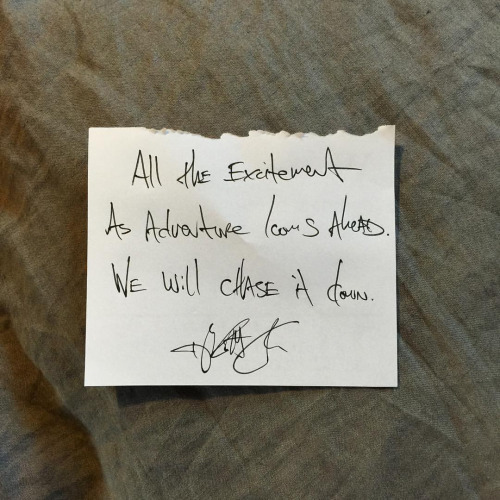 All the Excitement
As Adventure looms Ahead.
We will chase it down.